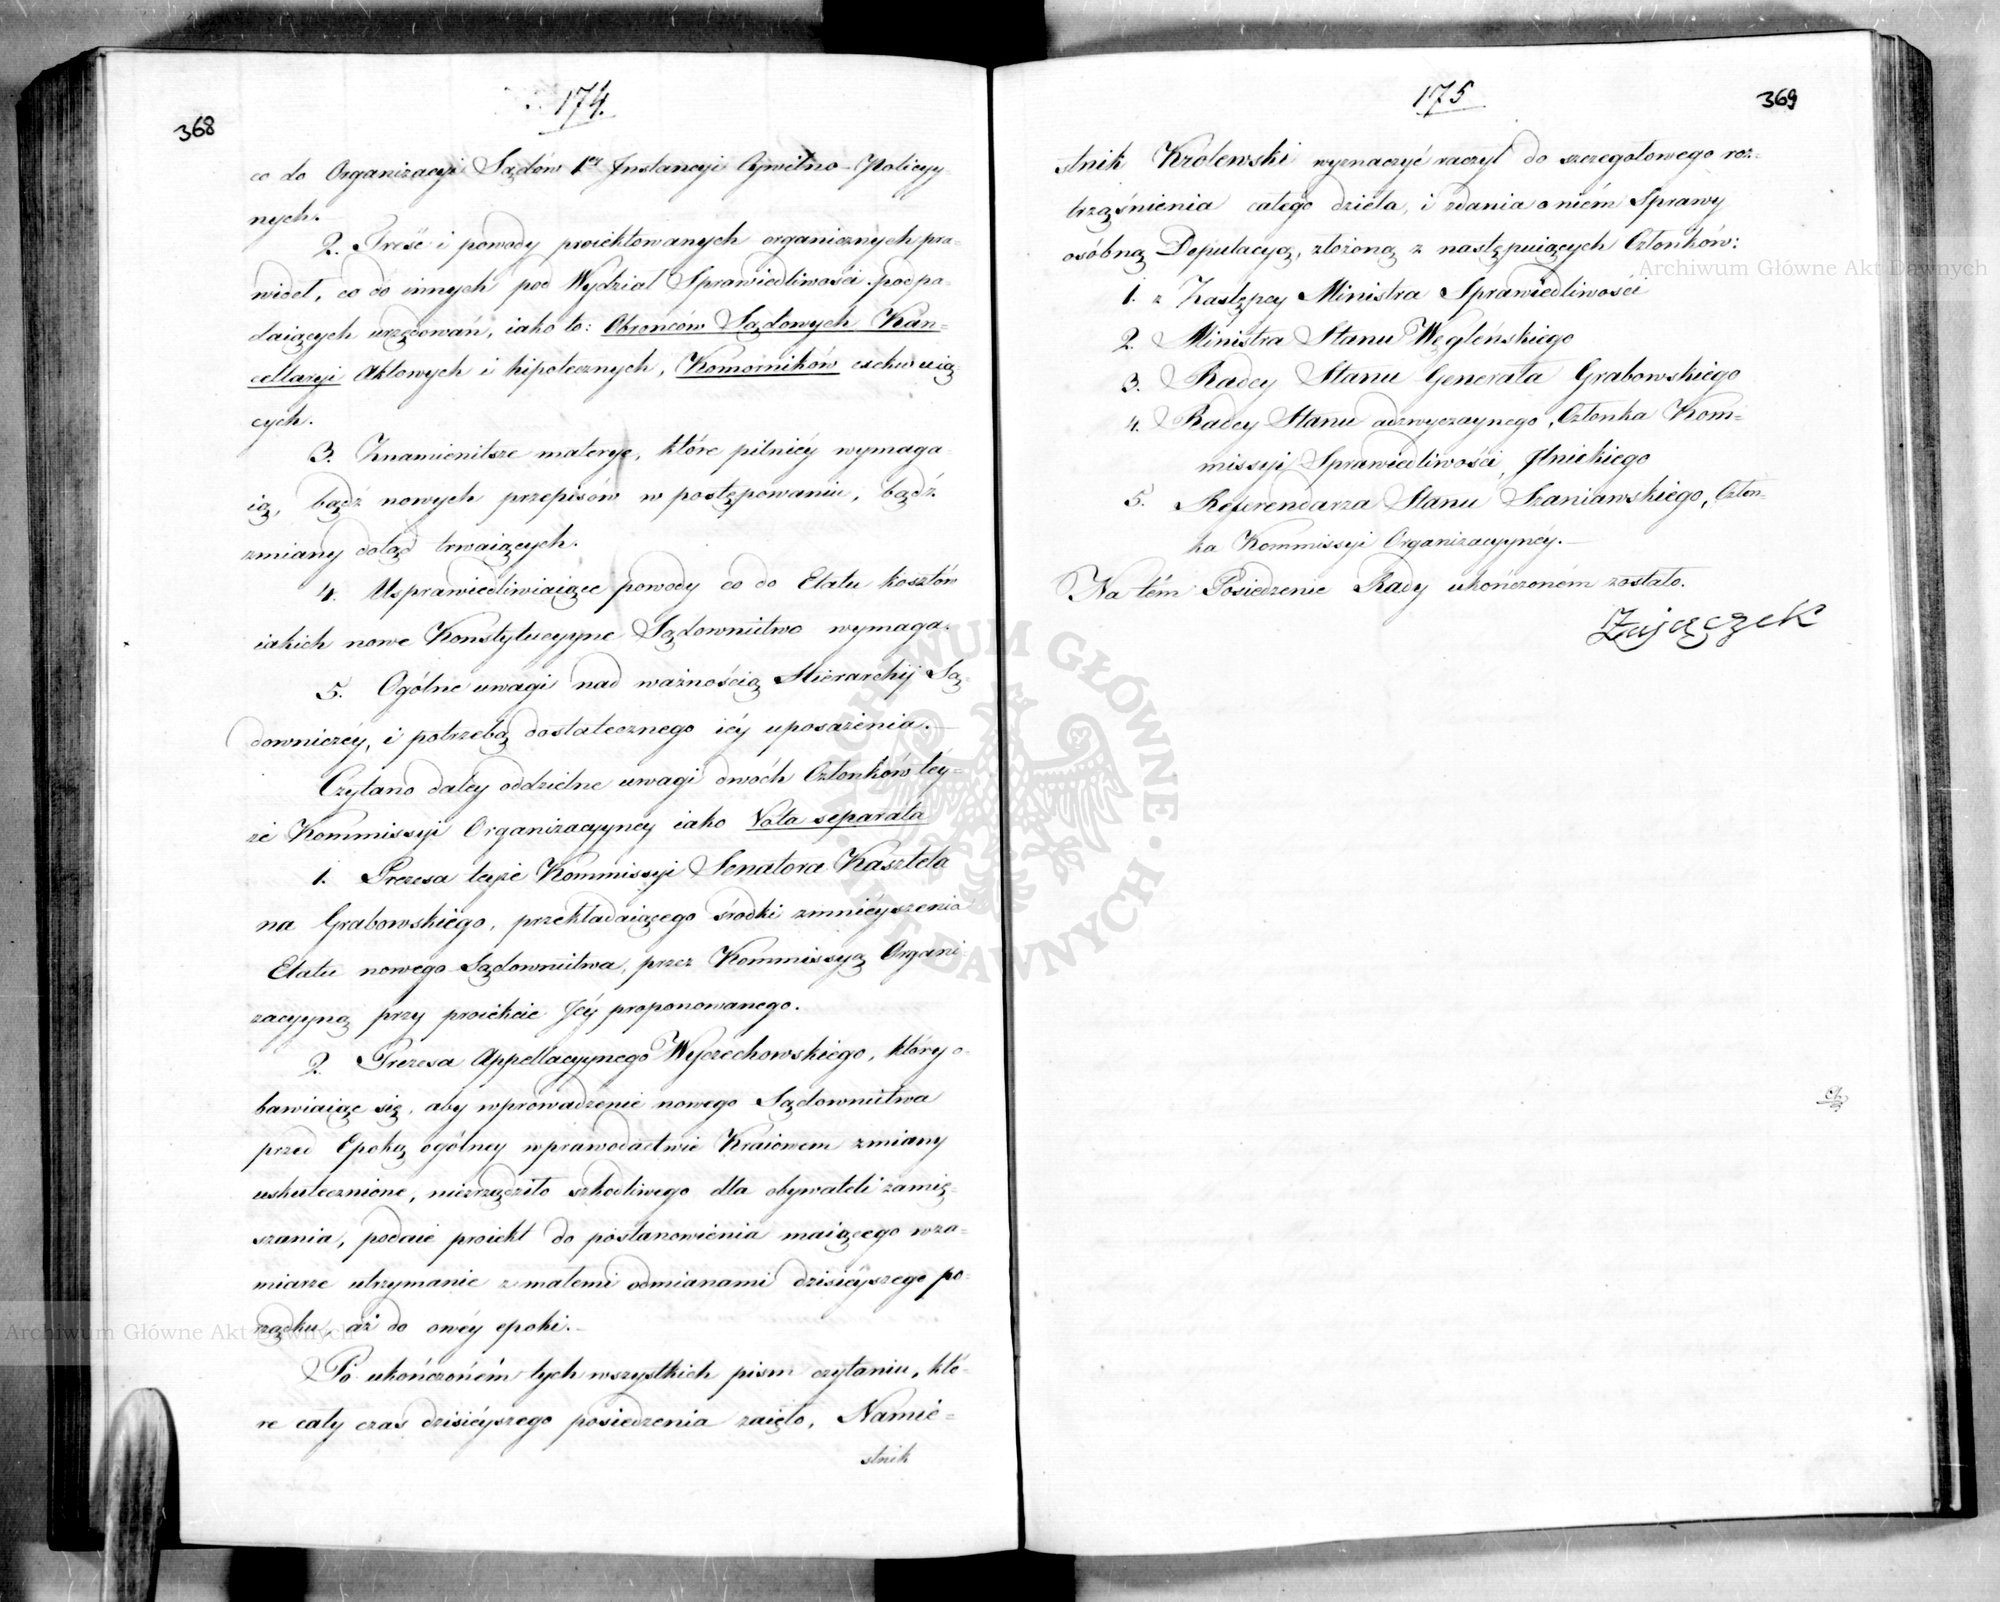 174.
368
co do Organizacyi Sądów 1ey Instancyi Cywilno-Policyy
nych.
2. Treść i powody proiektowanych organicznych pra-
wideł, co do innych pod Wydział Sprawiedliwości podpa-
daiących urzędowań, iako to: Obrońców Sądowych Kan-
cellaryi Aktowych i hipotecznych, Komorników exekwuią
cych.
3. Znamienitsze materye, które pilniéy wymaga
ią, bądź nowych przepisów w postępowaniu, bądź
zmiany dotąd trwaiących.
4. Usprawiedliwiaiące powody co do Etatu kosztów
iakich nowe Konstytucyyne Sądownictwo wymaga.
5. Ogólne uwagi nad ważnością Hierarchij Są-
downiczéy, i potrzebą dostatecznego iéy uposażenia.
Czytano daléy oddzielne uwagi dwóch Członków téy-
że Kommissyi Organizacyyney iako Vota separata
1. Prezesa teyże Kommissyi Senatora Kasztela
na Grabowskiégo, przekładaiącego środki zmniéyszenia
Etatu nowego Sądownictwa, przez Kommissyą Organi
zacyyną przy proiekcie Jéy proponowanego.
2. Prezesa Appellacyynego Wyczechowskiégo, który o-
bawiaiąc się, aby wprowadzenie nowego Sądownictwa
przed Epoką ogólney w prawodactwie Kraiowem zmiany
uskutecznione, niezrządziło szkodliwego dla obywateli zamię-
szania, podaie proiekt do postanowienia maiącego w za-
miarze utrzymanie z małemi odmianami dzisiéyszego po-
rządku, aż do owéy epoki.
Po ukończoném tych wszystkich pism czytaniu, któ-
re cały czas dzisiéyszego posiedzenia zaięło, Namie-
stnik
175
369
stnik Królewski wyznaczyć raczył do szczegołowego roz-
trząśnienia całego dzieła, i zdania o niém Sprawy
osóbną Deputacyą, złożoną z następuiących Członków:
1. z Zastępcy Ministra Sprawiedliwości
2. Ministra Stanu Węgleńskiego
3. Radcy Stanu Generała Grabowskiego
4. Radcy Stanu nadzwyczaynego, Członka Kom-
missyi Sprawiedliwości, Jlnickiego
5. Referendarza Stanu Szaniawskiego, Człon-
ka Kommissyi Organizacyynéy.
Na tém Posiedzenie Rady ukończoném zostało.
Zajączek
Archiwum Główne Akt Dawnych
Archiwum Główne Akt Dawnych
ARCHIWUM GŁÓWNE · AKT DAWNYCH ·